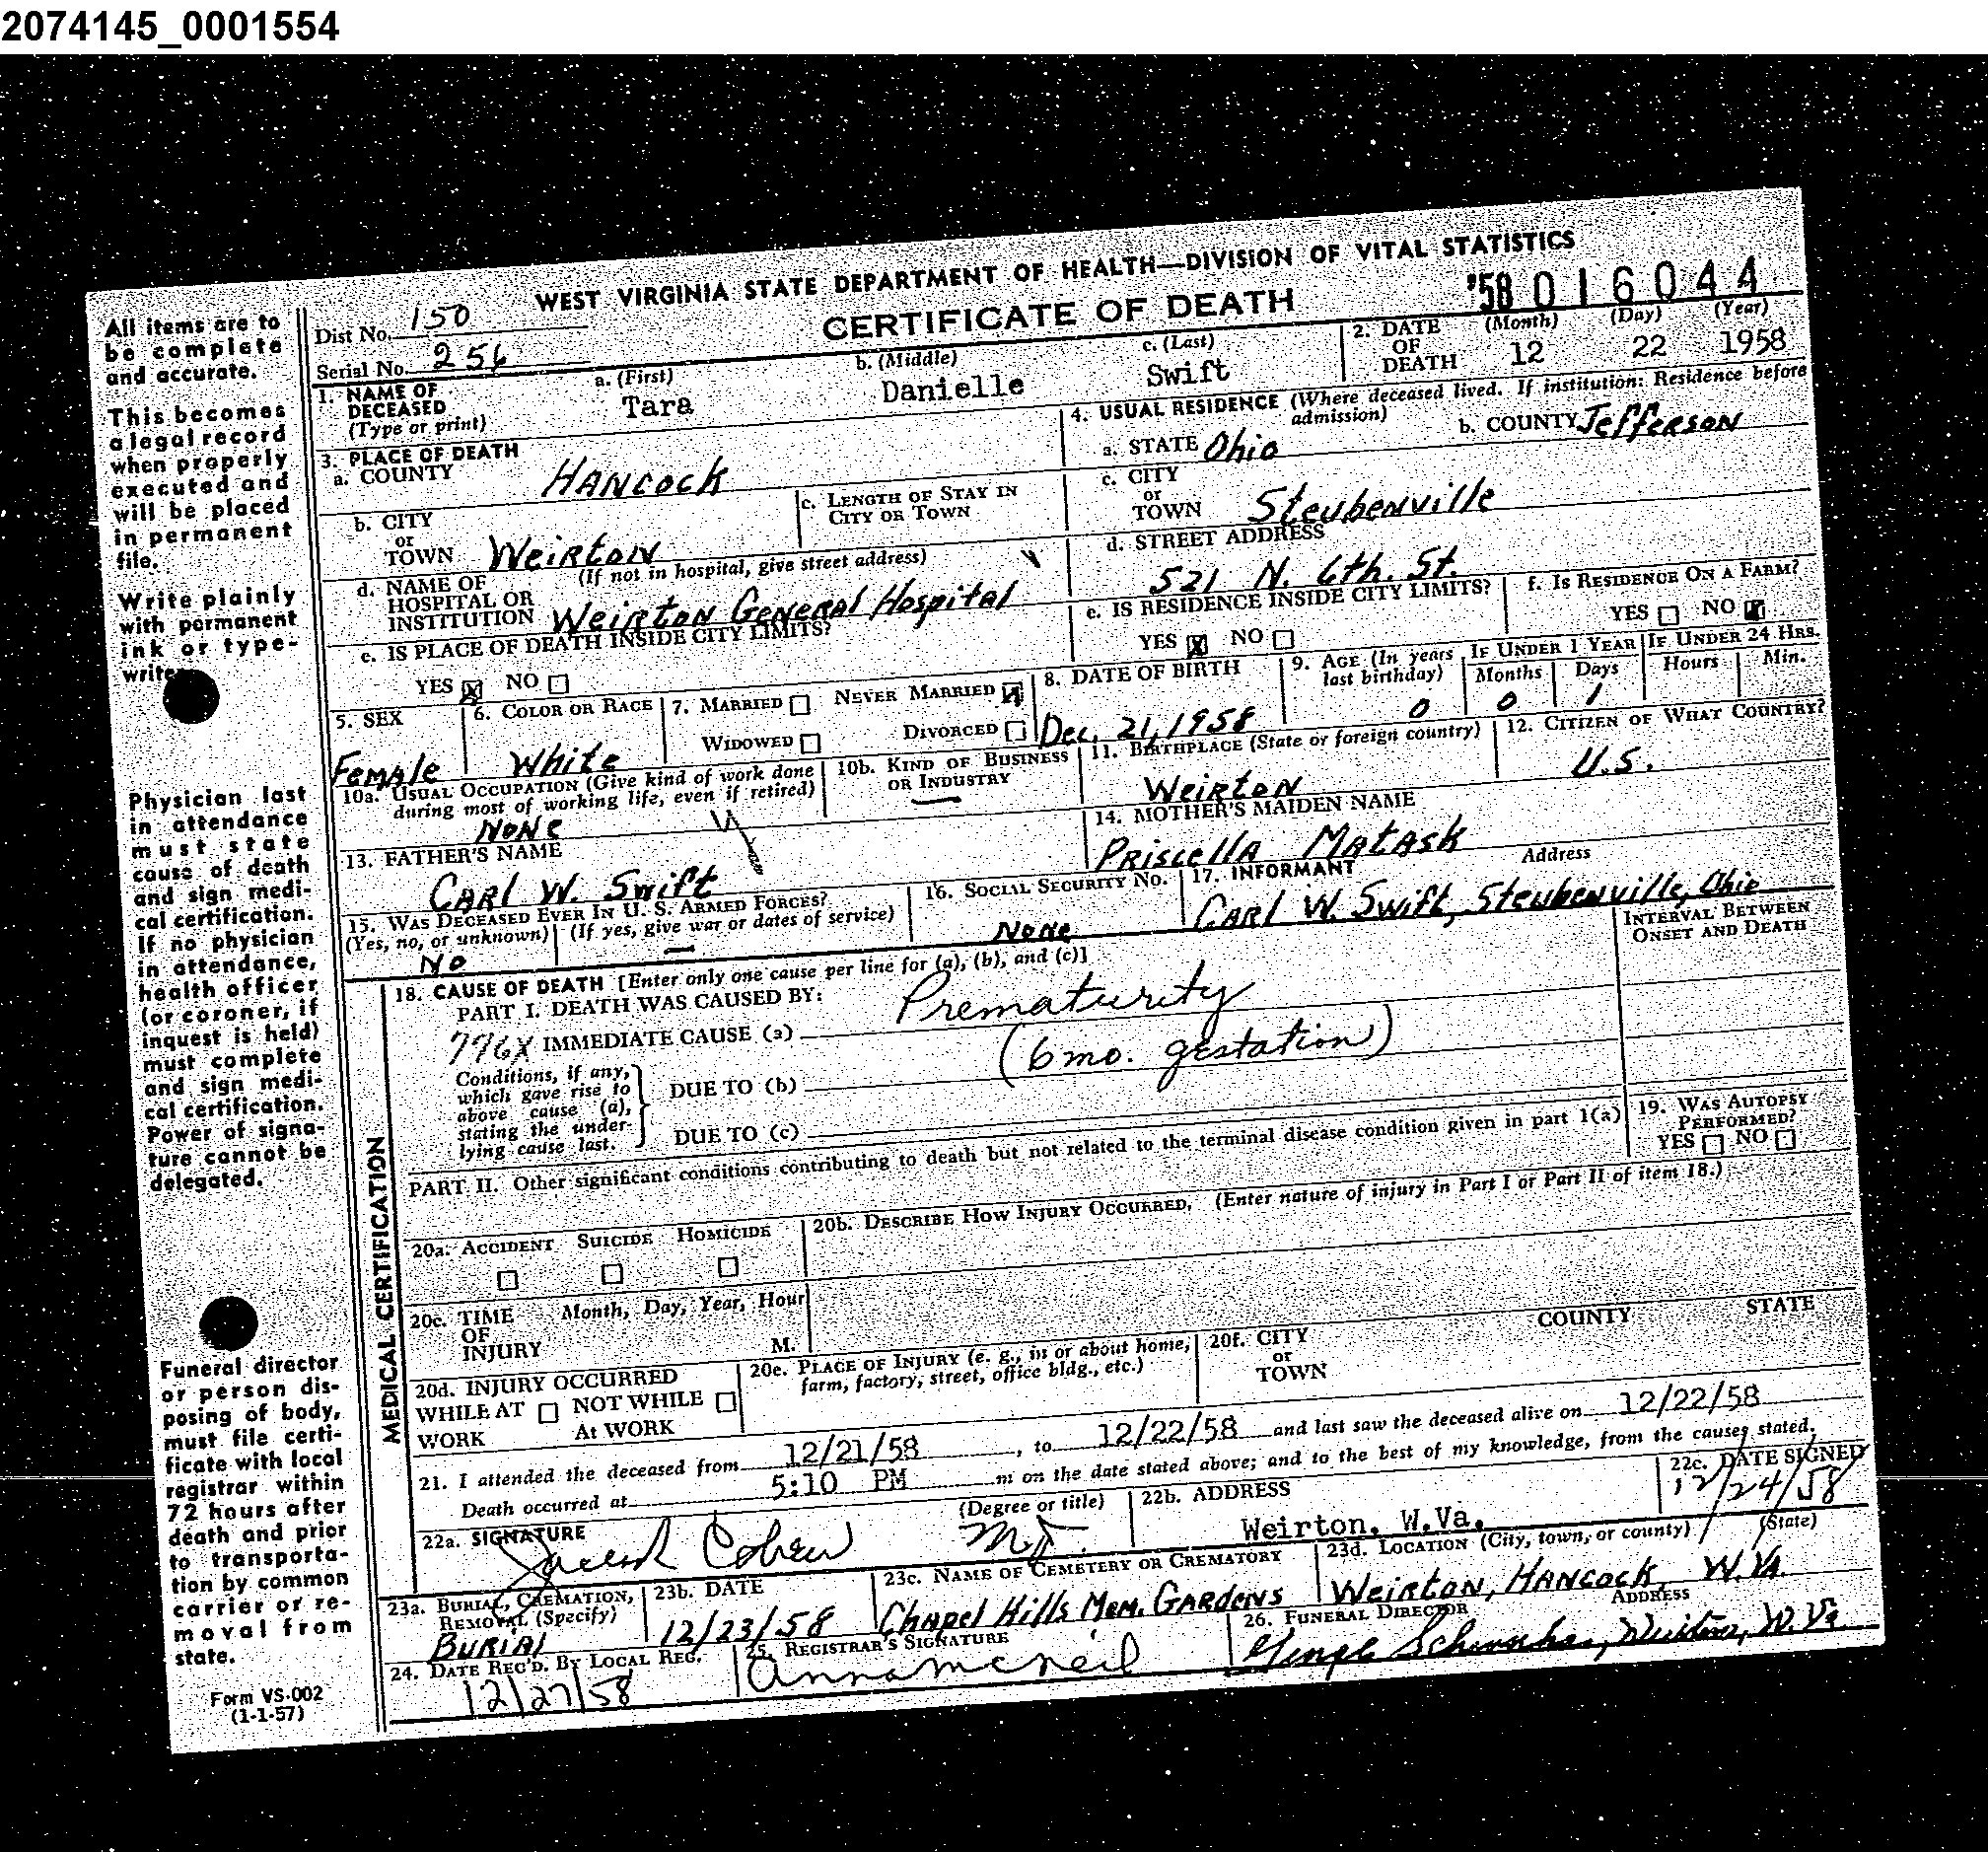 2074145_0001554
WEST VIRGINIA STATE DEPARTMENT OF HEALTH—DIVISION OF VITAL STATISTICS
CERTIFICATE OF DEATH
'58 016044
Dist No. 150
Serial No. 256
All items are to
be complete
and accurate.
This becomes
a legal record
when properly
executed and
will be placed
in permanent
file.
Write plainly
with permanent
ink or type-
write
Physician last
in attendance
must state
cause of death
and sign medi-
cal certification.
If no physician
in attendance,
health officer
(or coroner, if
inquest is held)
must complete
and sign medi-
cal certification.
Power of signa-
ture cannot be
delegated.
Funeral director
or person dis-
posing of body,
must file certi-
ficate with local
registrar within
72 hours after
death and prior
to transporta-
tion by common
carrier or re-
moval from
state.
Form VS-002
(1-1-57)
1. NAME OF DECEASED (Type or print)
a. (First) Tara
b. (Middle) Danielle
c. (Last) Swift
2. DATE OF DEATH (Month) (Day) (Year)
12 22 1958
3. PLACE OF DEATH
a. COUNTY Hancock
b. CITY or TOWN Weirton
c. LENGTH OF STAY IN CITY OR TOWN
d. NAME OF HOSPITAL OR INSTITUTION (If not in hospital, give street address)
Weirton General Hospital
e. IS PLACE OF DEATH INSIDE CITY LIMITS?
YES X NO
4. USUAL RESIDENCE (Where deceased lived. If institution: Residence before admission)
a. STATE Ohio
b. COUNTY Jefferson
c. CITY or TOWN Steubenville
d. STREET ADDRESS
521 N. 6th. St.
e. IS RESIDENCE INSIDE CITY LIMITS?
YES X NO
f. IS RESIDENCE ON A FARM?
YES NO X
5. SEX
Female
6. COLOR OR RACE
White
7. MARRIED NEVER MARRIED X
WIDOWED DIVORCED
8. DATE OF BIRTH
Dec. 21, 1958
9. AGE (In years last birthday) 0
IF UNDER 1 YEAR Months 0 Days 1
IF UNDER 24 HRS. Hours Min.
10a. USUAL OCCUPATION (Give kind of work done during most of working life, even if retired)
None
10b. KIND OF BUSINESS OR INDUSTRY
—
11. BIRTHPLACE (State or foreign country)
Weirton
12. CITIZEN OF WHAT COUNTRY?
U.S.
13. FATHER'S NAME
Carl W. Swift
14. MOTHER'S MAIDEN NAME
Priscella Matask
15. WAS DECEASED EVER IN U. S. ARMED FORCES?
(Yes, no, or unknown) (If yes, give war or dates of service)
No —
16. SOCIAL SECURITY NO.
None
17. INFORMANT Address
Carl W. Swift, Steubenville, Ohio
MEDICAL CERTIFICATION
18. CAUSE OF DEATH [Enter only one cause per line for (a), (b), and (c)]
INTERVAL BETWEEN ONSET AND DEATH
PART I. DEATH WAS CAUSED BY:
776X IMMEDIATE CAUSE (a) Prematurity
(6 mo. gestation)
Conditions, if any, which gave rise to above cause (a), stating the under-lying cause last.
DUE TO (b)
DUE TO (c)
PART II. Other significant conditions contributing to death but not related to the terminal disease condition given in part 1(a)
19. WAS AUTOPSY PERFORMED?
YES NO
20a. ACCIDENT SUICIDE HOMICIDE
20b. DESCRIBE HOW INJURY OCCURRED. (Enter nature of injury in Part I or Part II of item 18.)
20c. TIME OF INJURY Month, Day, Year, Hour M.
20d. INJURY OCCURRED
WHILE AT WORK NOT WHILE At WORK
20e. PLACE OF INJURY (e. g., in or about home, farm, factory, street, office bldg., etc.)
20f. CITY or TOWN COUNTY STATE
21. I attended the deceased from 12/21/58, to 12/22/58 and last saw the deceased alive on 12/22/58
Death occurred at 5:10 PM m on the date stated above; and to the best of my knowledge, from the causes stated.
22a. SIGNATURE (Degree or title)
Cohen M.D.
22b. ADDRESS
Weirton, W.Va.
22c. DATE SIGNED
12/24/58
23a. BURIAL, CREMATION, REMOVAL (Specify)
Burial
23b. DATE
12/23/58
23c. NAME OF CEMETERY OR CREMATORY
Chapel Hills Mem. Gardens
23d. LOCATION (City, town, or county) (State)
Weirton, Hancock, W. Va.
24. DATE REC'D. BY LOCAL REG.
12/27/58
25. REGISTRAR'S SIGNATURE
Anna McNeil
26. FUNERAL DIRECTOR ADDRESS
Weirton, W. Va.